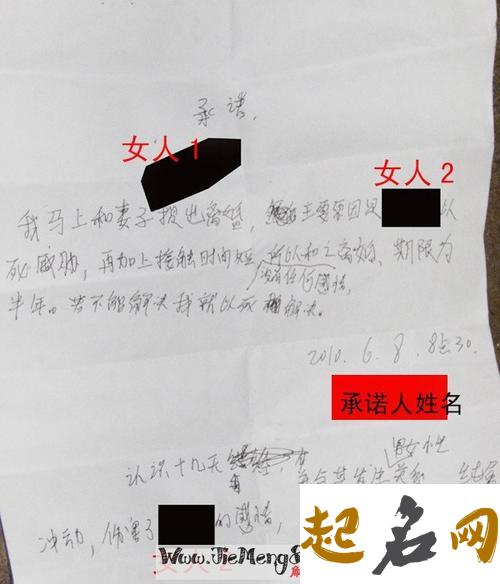 承诺,
女人1
女人2
我马上和妻子提出离婚, 主要原因是 以
死威胁, 再加上接触时间短 所以和之离婚, 期限为
没有任何感情,
半年。若不能解决我就以死 解决。
2010. 6. 8. 8点30.
承诺人姓名
男女性
认识十九天 有 与其发生关系
冲动, 伤害了 的感情,
起名网
Www.JieMeng8